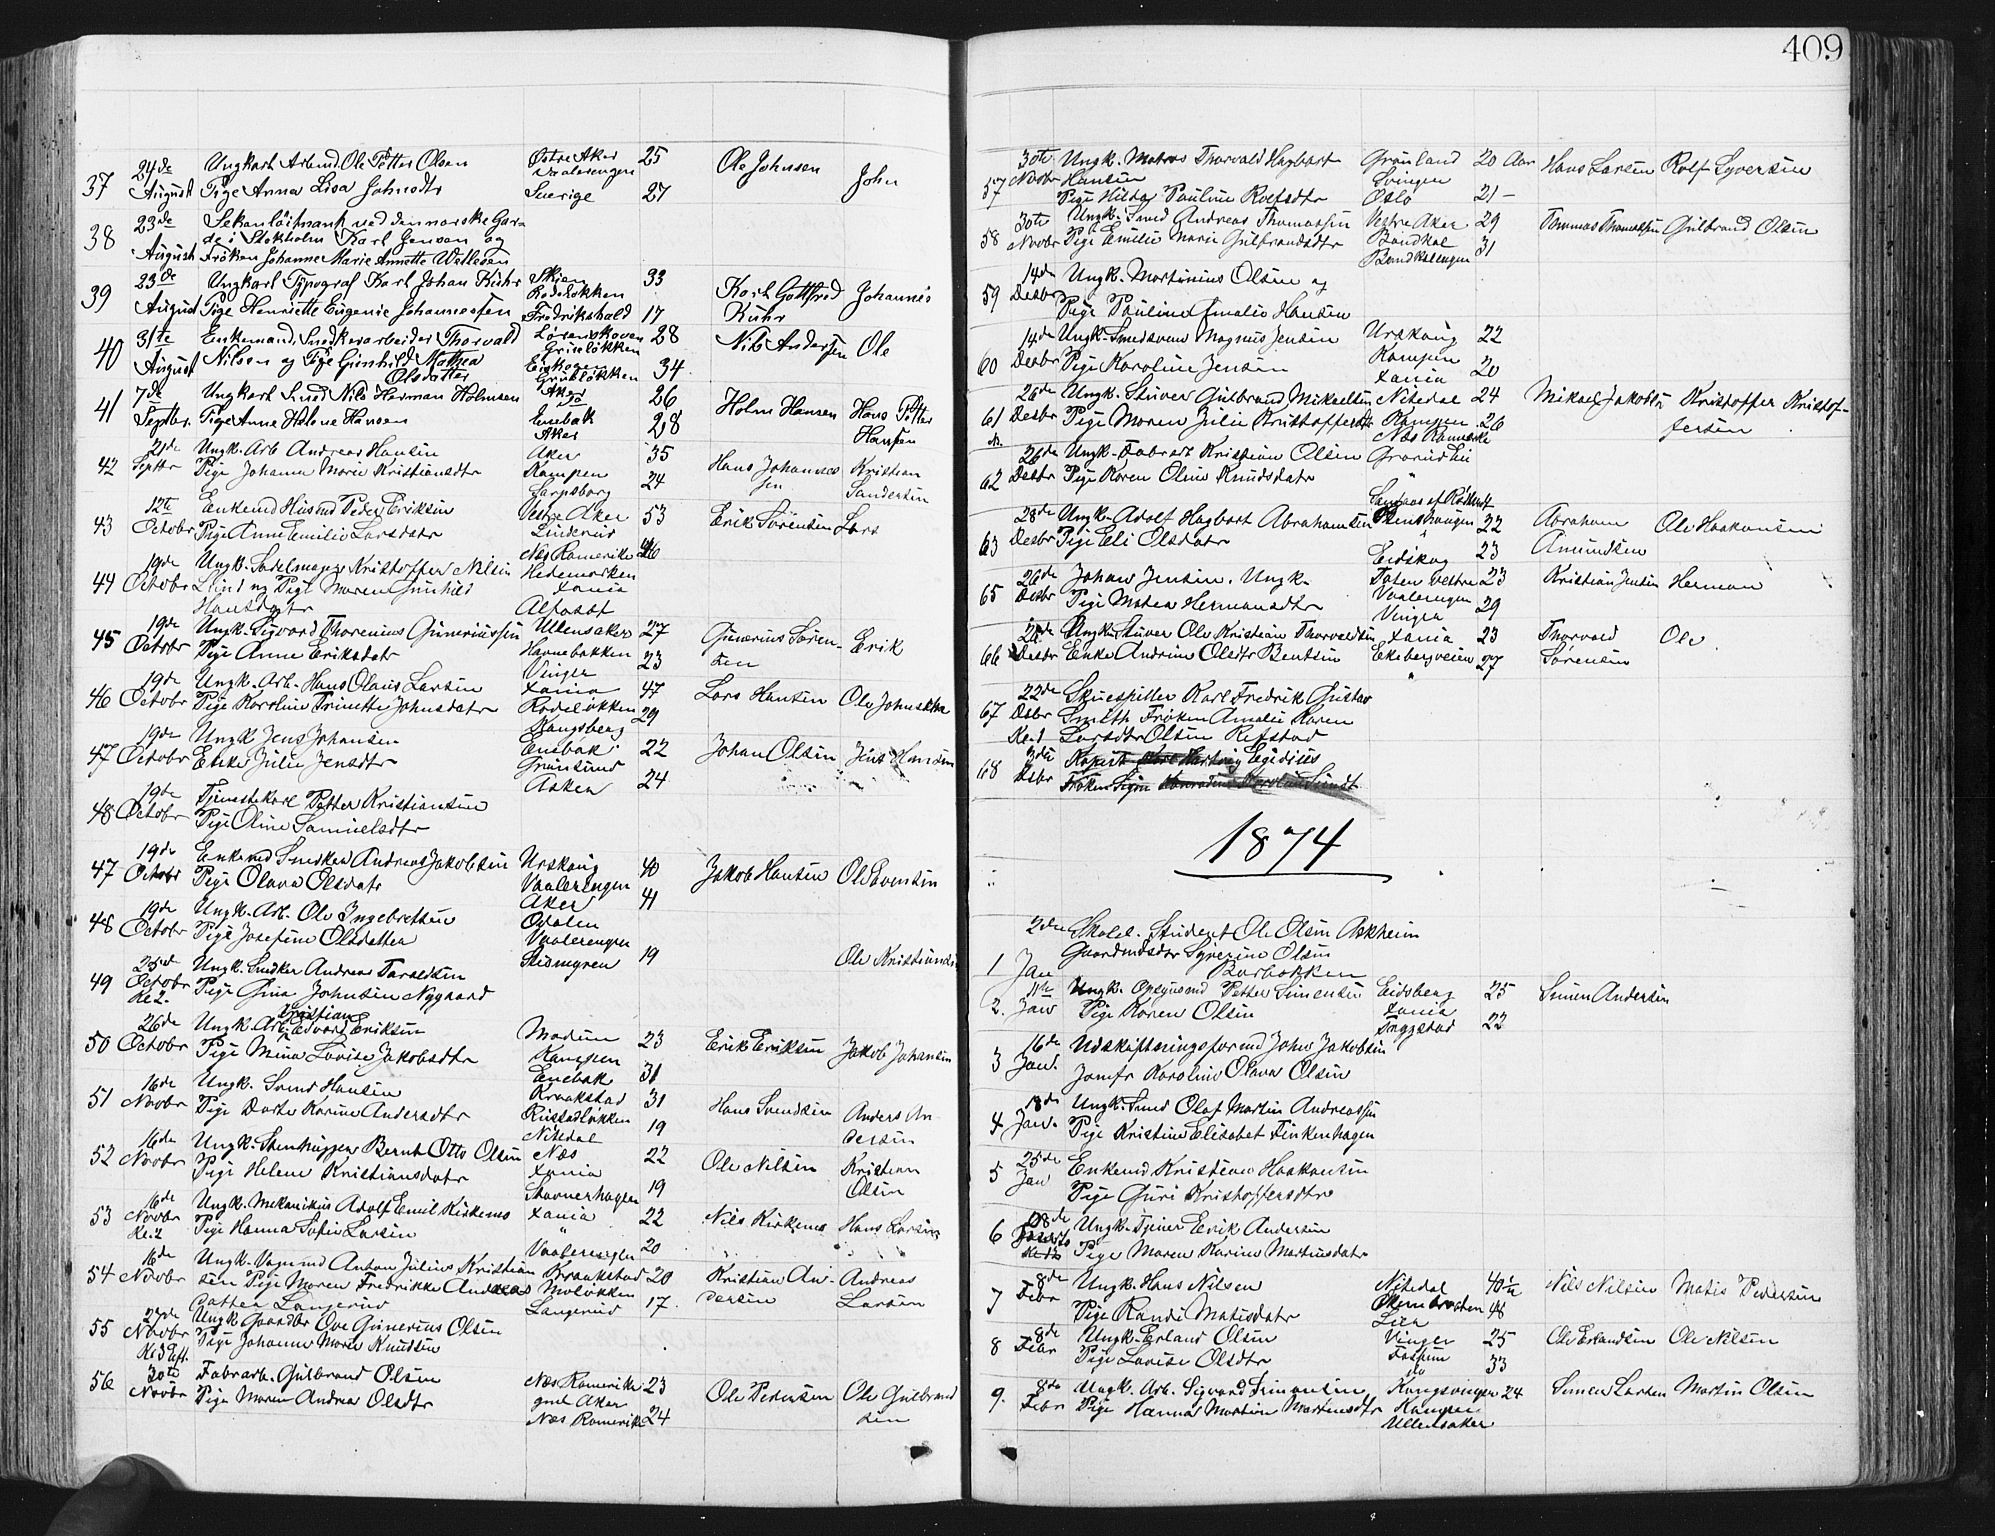 409
37 24de August Ungkarl Arbmd. Ole Petter Olsen Østre Aker Vaalerengen 25 Ole Johnsen John
Pige Anna Lisa Johnsdtr Sverige 27
38 23de August Sekonløitnant ved den norske Gar-
de i Stokholm Karl Jenson og
Frøken Johanne Marie Annette Wellesen
39 23de August Ungkarl Typograf Karl Johan Kühr Skien Rodeløkken 33 Karl Gottfred Kühr Johannes
Pige Henriette Eugenie Johannessen Fredrikshald 17
40 31te August Enkemand, Snedkerarbeider Thorvald Lørenskoven Grünløkken 28 Nils Andersen Ole
Nilsen og Pige Gunhild Mathea
Olsdatter Grünløkken 34
41 7de Septbr. Ungkarl Smed Nils Herman Holmsen Aker 26 Holm Hansen Hans Petter Hansen
Pige Anne Helene Hansen Enebak Aker 28
42 21de Septbr Ungk. Arb Andreas Hansen Aker 35 Hans Johannes sen Kristian Sandersen
Pige Johanne Marie Kristiansdtr Kampen Sarpsborg 24
43 12te Octobr Enkemd Husmd Peder Eriksen Vestre Aker 53 Erik Sørensen Lars
Pige Anne Emilie Larsdatr Linderud
44 19de Octobr Ungk. Sadelmager Kristoffer Nilsen Næs Romerike 26
Lund og Pige Maren Gunhild Hedemarken Xania
Hansdatr
45 19de Octobr Ungk. Sigvard Thorenius Guneriussen Ullensaker 27 Gunerius Søren- sen Erik
Pige Anne Eriksdatr Havnebakken Vinger 23
46 19de Octobr Ungk. Arb. Hans Olaus Larsen Xania 47 Lars Hansen
Pige Karoline Trinette Johnsdatr Rodeløkken Kongsberg 29
47 19de Octobr Ungk Jens Johansen Enebak 22 Johan Olsen Jens Hansen
Enke Julie Jensdtr Grønsund Asken 24
48 19de Octobr Tjenestekarl Petter Kristiansen
Pige Oline Samuelsdtr
47 19de Octobr Enkemd Snedker Andreas Jakobsen Urskoug 40 Jakob Hansen Ole Evensen
Pige Olava Olsdatr Vaalerengen Aker 41
48 19de Octobr Ungk. Arb. Ole Ingebretsen Odalen
Pige Josefine Olsdatter Vaalerengen 19 Ole Kristiansen
49 25de Octobr Kl 2. Ungk. Snedker Andreas Taraldsen
Pige Gina Johnsen Nygaard
50 26de Octobr Ungk. Arb. Kristian Edvard Eriksen Modum 23 Erik Eriksen Jakob Johansen
Pige Mina Lovise Jakobsdtr Kampen Enebak 31
51 16de Novbr Ungk. Svend Hansen Kraakstad 31 Hans Svendsen Anders An dersen
Pige Dorte Karine Andersdtr Rustadløkken Nitedal 19
52 16de Novbr Ungk. Stenhugger Bernt Otto Olsen Næs 22 Ole Nilsen Kristian Olsen
Pige Helene Kristiansdatr Xania Stavnerhagen 19
53 16de Novbr Kl. 2 Ungk. Mekanikus Adolf Emil Kirkemo Xania 22 Nils Kirkemo Hans Larsen
Pige Hanna Sofie Larsen " Vaalerengen 20
54 16de Novbr Ungk. Vognmd Anton Julius Kristian Kraakstad 20 Kristian An- dersen Andreas Larsen
sen Pige Maren Fredrikke Andreas Moløkken
datter Langerud Langerud 17
55 27de Novbr Kl 3 Eft. Ungk Gaardbr Ove Gunerius Olsen
Pige Johanne Marie Knudsen
56 30te Novbr Fabrarb. Gulbrand Olsen Næs Romerike 23 Ole Pedersen Ole Gulbrand sen
Pige Maren Andrea Olsdtr gml Aker Næs Romerike 24
57 30te Novbr Ungk. Matros Thorvald Hagbart Grønland 20 Aar Hans Larsen Rolf Syversen
Hansen Svingen
Pige Hilda Pauline Rolfsdtr Oslo 21 -
58 30te Novbr Ungk. Smed Andreas Thomassen Vestre Aker 29 Tommas Thomassen Gulbrand Olsen
Pige Emilie Marie Gulbrandsdtr 31
59 14de Desbr Ungk. Martinius Olsen og
Pige Pauline Amalie Hansen
60 14de Desbr Ungk. Smedsvend Magnus Jensen Urskoug 22
Pige Karoline Jensen Kampen Xania 20
61 26de Desbr Ungk. Stuver Gulbrand Mikaelsen Nitedal 24 Mikael Jakobsen Kristoffer Kristof-
Pige Maren Julie Kristoffersdtr Kampen Næs Romerike 26 fersen
62 26de Desbr Ungk. Fabrarb Kristian Olsen Grorud Lie
Pige Karen Oline Knudsdatr "
63 28de Desbr Ungk. Adolf Hagbart Abrahamsen 22 Abraham Amundsen Ole Haakonsen
Pige Eli Olsdatr Eidskog 23
65 26de Desbr Johan Jensen. Ungk. Toten vestre 23 Kristian Jensen Herman
Pige Matea Hermansdtr Vaalerengen Vinger 29
66 Desbr Ungk. Stuver Ole Kristian Thorvaldsen Xania 23 Thorvald Sørensen Ole.
Enke Andrine Olsdtr Bentsen Ekebergveien 27
67 22de Desbr Kl. 1 Skuespiller Karl Fredrik Gustav
Smith Frøken Amalie Karen
Larsdtr Olsen Refstad
68 3die Desbr Karl Hartvig Egidius
Frøken Signe
1874
1 2den Jan Skolel. Student Ole Olsen Askheim
Gaardmdsdtr Syverine Olsen
Barbakken
2. 11te Jan Ungk. Opsynsmd Petter Simensen Eidsberg 25 Simen Andersen
Pige Karen Olsen Xania Trygstad 22
3 16de Jan. Udskiftningsformd Johs Jakobsen
Jomfr Karoline Olava Olsen
4 18de Jan. Ungk. Smed Olaf Martin Andreassen
Pige Kristine Elisabet Finkenhagen
5 25de Jan Enkemd Kristian Haakonsen
Pige Guri Kristoffersdtr
6 Ungk. Tjener Erik Andersen
Pige Maren Karine Martinusdatr
7 8de Febr Ungk. Hans Nilsen Nitedal 40½ Nils Nilsen Matis Pedersen
Pige Randi Matisdatr Lier 48
8 8de Febr Ungk. Erland Olsen Vinger 25 Ole Erlandsen Ole Nilsen
Pige Lovise Olsdtr 33
9. 8de Febr Ungk. Arb. Sigvard Simensen Kongsvinger 24 Simen Larsen Martin Olsen
Pige Hanna Martine Martinsdtr Kampen Ullensaker